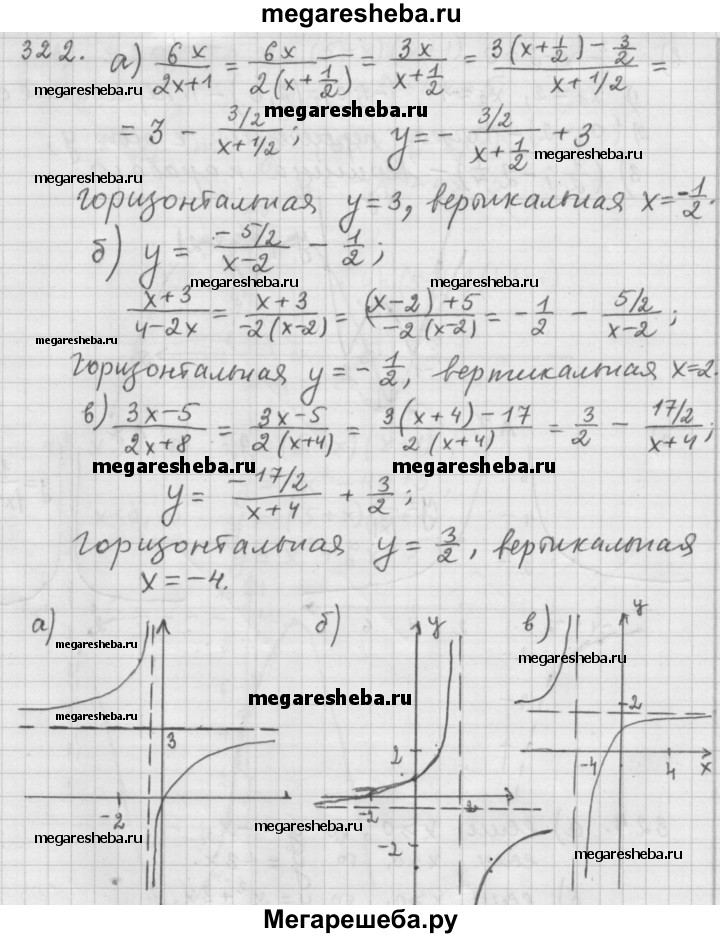 megaresheba.ru
322. а) 6x/(2x+1) = 6x/(2(x+1/2)) = 3x/(x+1/2) = (3(x+1/2) - 3/2)/(x+1/2) =
megaresheba.ru megaresheba.ru
= 3 - (3/2)/(x+1/2); y = - (3/2)/(x+1/2) + 3
megaresheba.ru
megaresheba.ru
горизонтальная y=3, вертикальная x=-1/2.
б) y = (-5/2)/(x-2) - 1/2;
megaresheba.ru megaresheba.ru
(x+3)/(4-2x) = (x+3)/(-2(x-2)) = ((x-2)+5)/(-2(x-2)) = -1/2 - (5/2)/(x-2);
megaresheba.ru
горизонтальная y=-1/2, вертикальная x=2.
в) (3x-5)/(2x+8) = (3x-5)/(2(x+4)) = (3(x+4)-17)/(2(x+4)) = 3/2 - (17/2)/(x+4);
megaresheba.ru megaresheba.ru
y = (-17/2)/(x+4) + 3/2;
горизонтальная y=3/2, вертикальная
x=-4.
а) б) y в) y
megaresheba.ru
megaresheba.ru
megaresheba.ru
megaresheba.ru
3 2 2
-4 4 x
-2 -2 2
megaresheba.ru megaresheba.ru megaresheba.ru
-2
Мегарешеба.ру